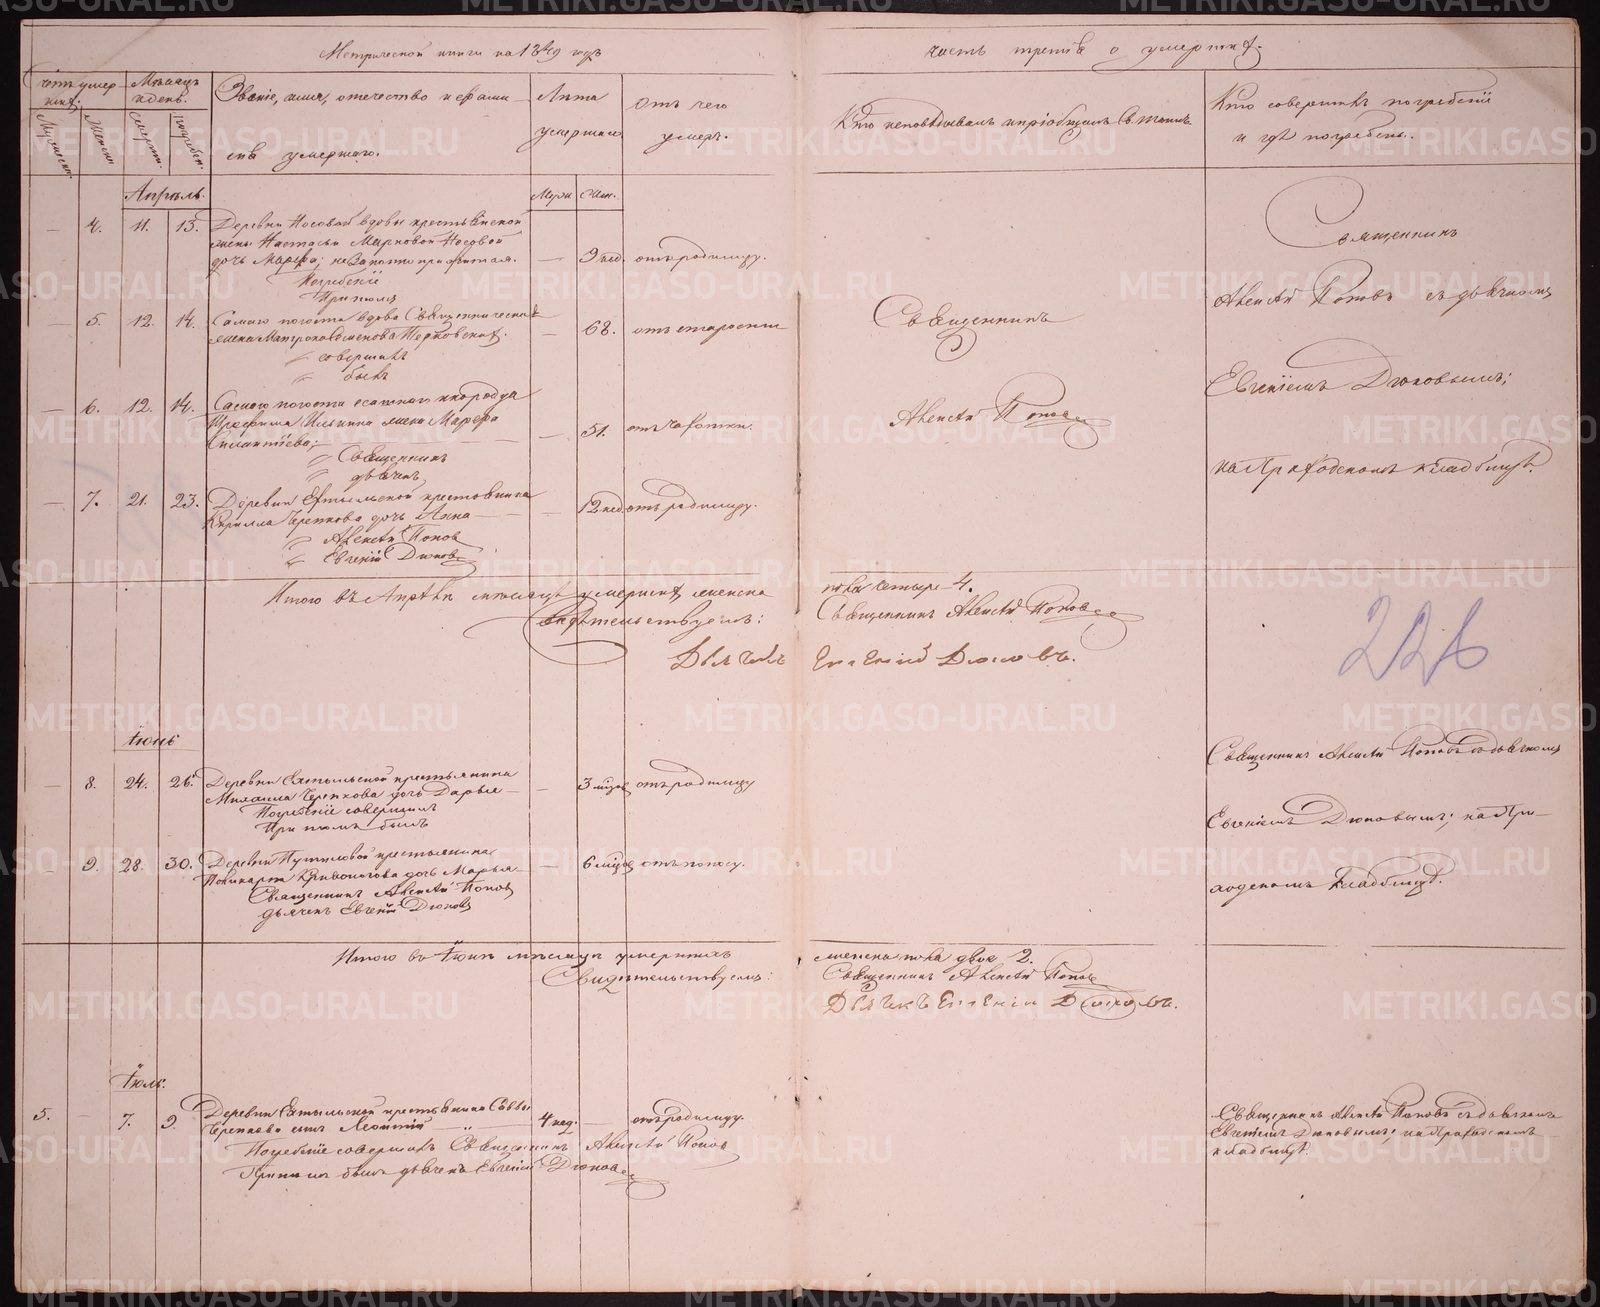 Метрической книги на 18 годъ
часть третія о умершихъ.
Счетъ умер-
шихъ.
Мѣсяцъ
и день.
Званіе, имя, отечество и фами-
лія умершаго.
Лѣта
умершаго.
Отъ чего
умеръ.
Кто исповѣдывалъ и пріобщалъ
Кто совершалъ погребеніе
и гдѣ погребены.
Мужеска.
Женска.
Смерти.
Погребен.
Апрѣль.
Муж. Жен.
— 4. 11. 13. Деревни Носовой вдовы крестьянской
жены Настасьи Марковой Носовой
дочь Марфа; незаконноприжитая. — 9 нед. отъ родимцу.
Погребеніе
При томъ
— 5. 12. 14. Самаго погоста вдова Священническая
жена Матрона Семенова — 68. отъ старости
совершалъ
былъ
— 6. 12. 14. Самаго погоста
Ильина жена Марфа
— 51. отъ чахотки.
Священникъ
дьячекъ
— 7. 21. 23. Деревни Ехтыльской крестьянина
Кирилла Черепкова дочь Анна — 12 нед. отъ родимцу.
Алексѣй Поповъ
Евгеній Дюковъ
Священникъ
Алексѣй Поповъ
Священникъ
Алексѣй Поповъ съ дьячкомъ
Евгеніемъ Дюковымъ;
на Приходскомъ кладбищѣ.
Итого въ Апрѣлѣ мѣсяцѣ умершихъ женска
пола четыре 4.
Свидѣтельствуемъ:
Священникъ Алексѣй Поповъ
Дьячекъ Евгеній Дюковъ.
226
Іюнь
— 8. 24. 26. Деревни Ехтыльской крестьянина
Михаила Черепкова дочь Дарья — 3 мѣсяц. отъ родимцу
Погребеніе совершилъ
При томъ былъ
— 9. 28. 30. Деревни Путиловой крестьянина
Поликарпа Кривоногова дочь Марья — 6 мѣсяц. отъ поносу.
Священникъ Алексѣй Поповъ
дьячекъ Евгеній Дюковъ
Священникъ Алексѣй Поповъ съ дьячкомъ
Евгеніемъ Дюковымъ; на При-
ходскомъ кладбищѣ.
Итого въ Іюнѣ мѣсяцѣ умершихъ
женска пола двое 2.
Свидѣтельствуемъ:
Священникъ Алексѣй Поповъ
Дьячекъ Евгеній Дюковъ.
Іюль.
5. — 7. 9. Деревни Ехтыльской крестьянина Саввы
Черепкова сынъ Леонтій 4 нед. — отъ родимцу.
Погребеніе совершалъ Священникъ Алексѣй Поповъ
При томъ былъ дьячекъ Евгеній Дюковъ
Священникъ Алексѣй Поповъ съ дьячкомъ
Евгеніемъ Дюковымъ; на Приходскомъ
кладбищѣ.
METRIKI.GASO-URAL.RU